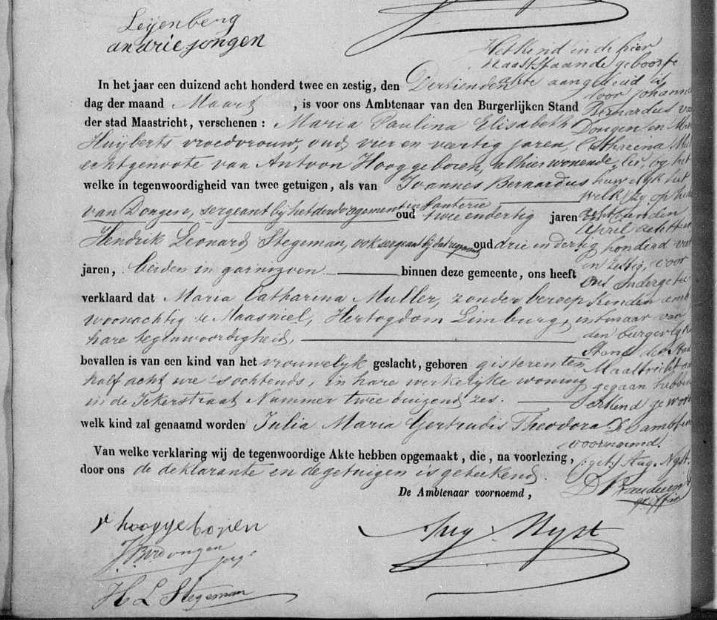 Leijenberg
andriejongen
In het jaar een duizend acht honderd twee en zestig, den Dertienden
dag der maand Maart , is voor ons Ambtenaar van den Burgerlijken Stand
der stad Maastricht, verschenen : Maria Paulina Elisabeth
Huijberts vroedvrouw, oud vier en veertig jaren,
echtgenoote van Antoon Hooggeboren, alhier wonende,
welke in tegenwoordigheid van twee getuigen, als van Joannes Bernardus
van Dongen, sergeant bij het derde regement infanterie oud twee en dertig jaren en van
Hendrik Leonard Stegeman, ook sergeant bij dat regement oud drie en dertig
jaren, beiden in garnizoen binnen deze gemeente, ons heeft
verklaard dat Maria Catharina Muller, zonder beroep
woonachtig te Maasniel, Hertogdom Limburg,
hare tegenwoordigheid,
bevallen is van een kind van het vrouwelyk geslacht, geboren gisteren ten
half acht ure 's ochtends, in hare werkelyke woning
in de Jekerstraat Nummer twee duizend zes.
welk kind zal genaamd worden Julia Maria Gertrudis Theodora
Van welke verklaring wij de tegenwoordige Akte hebben opgemaakt, die, na voorlezing,
door ons de deklarante en de getuigen is geteekend.
De Ambtenaar voornoemd,
Hooggeboren
Aug. Nyst
H L Stegeman
Het kind in de hier
naast staande geboorte
akte aangeduid is
door Johannes
Bernardus van
Dongen en Maria
Catharina Muller
bij het
huwelyk het
welk zy op heden
den
April achttien
honderd vier
en zestig, voor
ons ondergete
kenden ambt
van
den burgerlyke
Stand der Stad
Maastricht
gegaan hebben
erkend geworden
De ambtenaar
voornoemd.
(get.) Aug. Nyst.